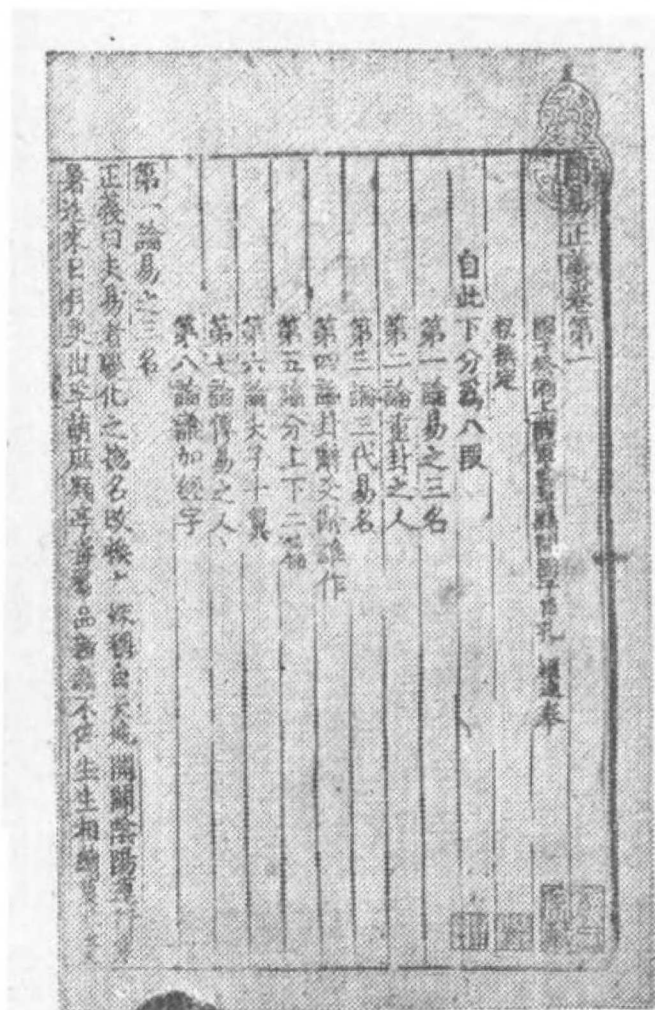 周易正義卷第一
國子祭酒上護軍曲阜縣開國子臣孔穎達奉
敕撰定
自此下分爲八段
第一論易之三名
第二論重卦之人
第三論三代易名
第四論卦辭爻辭誰作
第五論分上下二篇
第六論夫子十翼
第七論傳易之人
第八論誰加經字
第一論易之三名
正義曰夫易者變化之揔名改換之殊稱自天地開闢陰陽運行寒
暑迭來日月更出孚萌庶類亭毒羣品新新不停生生相續莫非資